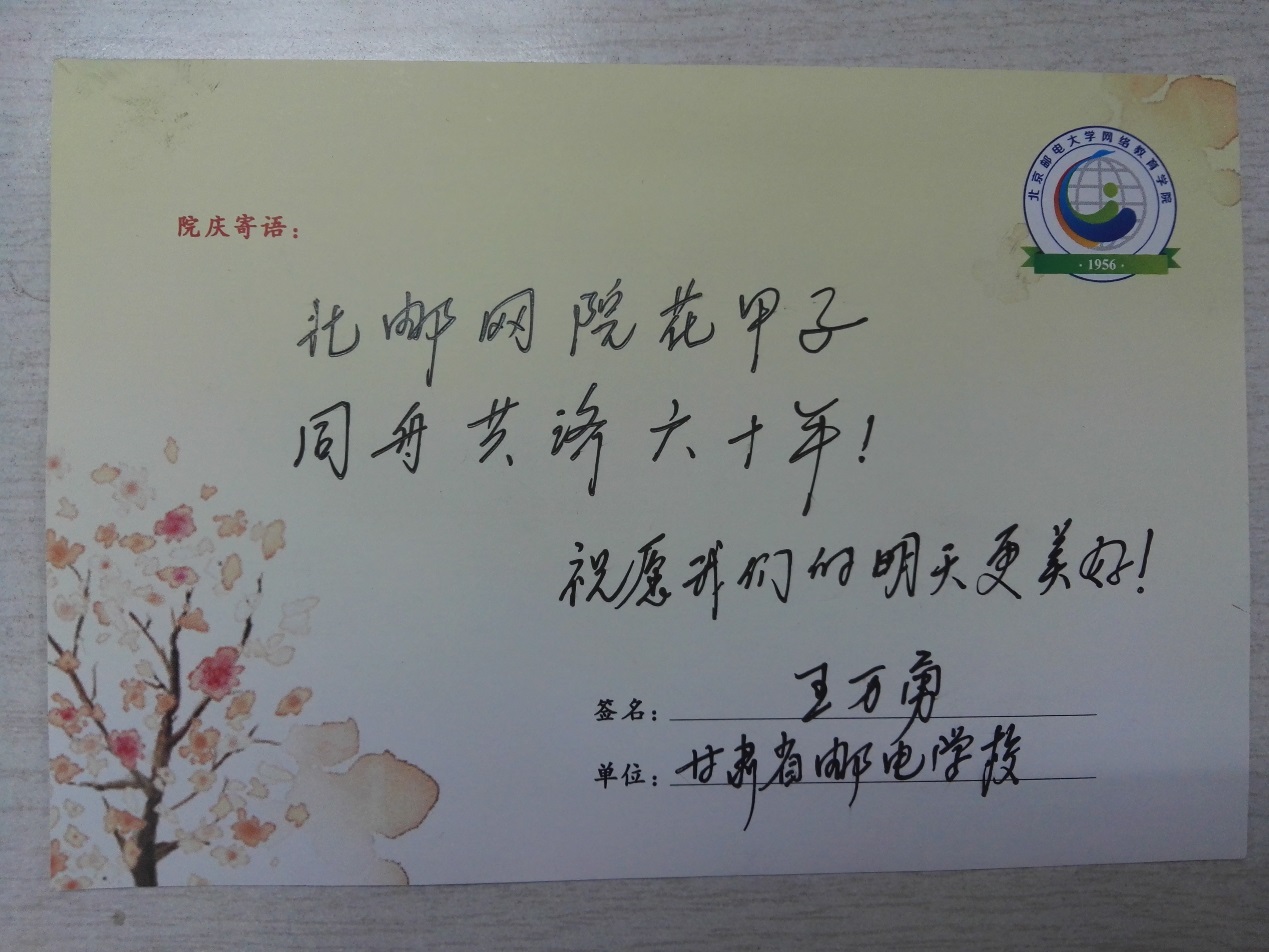 北京邮电大学网络教育学院
·1956·
院庆寄语：
北邮网院花甲子
同舟共济六十年！
祝愿我们的明天更美好！
签名：王万勇
单位：甘肃省邮电学校